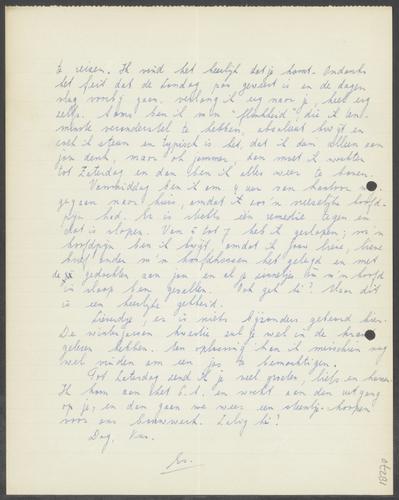 te reizen. Ik vind het heerlijk dat je komt. Ondanks
het feit dat de Zondag pas geweest is en de dagen
vlug voorbij gaan, verlang ik erg naar je, heel erg
zelfs. Soms ben ik m'n "flinkheid", die ik
veronderstel te hebben, absoluut kwijt en
voel ik alleen en typisch is het, dat ik dan alleen aan
jou denk, maar oh jammer, dan moet ik wachten
tot Zaterdag en dan ben ik alles weer te boven.
Vanmiddag ben ik om 4 uur van kantoor
gegaan naar huis, omdat ik zoo'n vreeselijke hoofd-
pijn had. Er is slechts één remedie tegen en
dat is slapen. Van 5 tot 7 heb ik geslapen; m'n
hoofdpijn ben ik kwijt, omdat ik jouw lieve, lieve
brief onder m'n hoofdkussen het gelegd en met
de gedachten aan jou en al je zinnetjes in m'n hoofd
in slaap ben gevallen. Gek hè? Maar dit
is een heerlijke gekheid.
Lieverdje, er is niets bijzonders gebeurd hier.
De winterjassen kwestie zul je wel in de krant
gelezen hebben. Een oplossing kan ik misschien nog
wel vinden om een jas te bemachtigen.
Tot Zaterdag zend ik je veel groeten, liefs en
Ik kom aan het C.S. en wacht aan den uitgang
op je, en dan gaan we weer een steentje koopen
voor ons bouwwerk. Zalig hè!
Dag,
08290